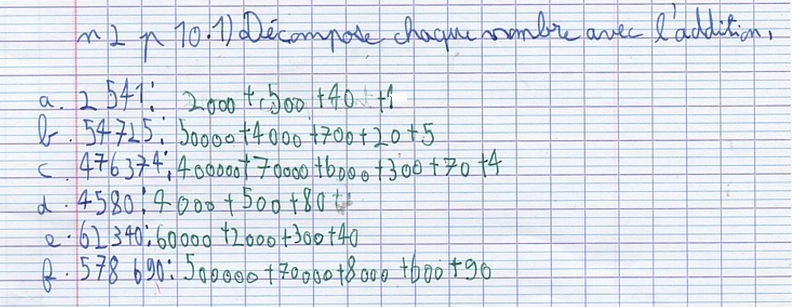 n 2 p 10. 1) Décompose chaque nombre avec l'addition.
a. 2 541: 2000 + 500 + 40 + 1
b. 54725: 50000 + 4000 + 700 + 20 + 5
c. 476374: 400000 + 70000 + 6000 + 300 + 70 + 4
d. 4580: 4000 + 500 + 80
e. 62 340: 60000 + 2000 + 300 + 40
f. 578 690: 500000 + 70000 + 8000 + 600 + 90